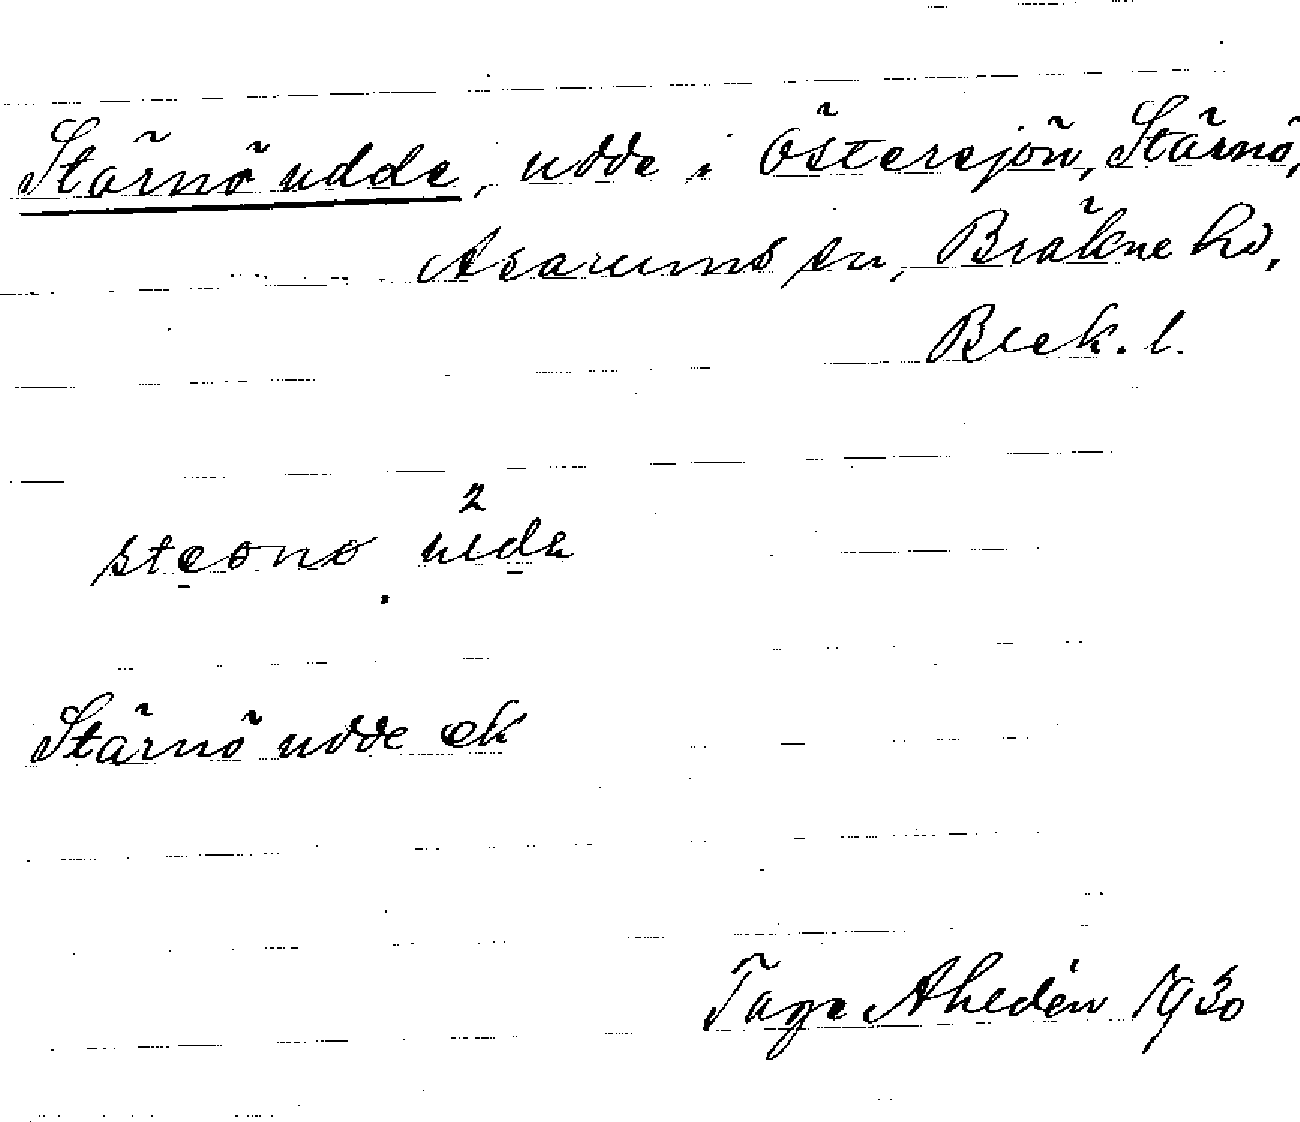 Stärnö udde, udde i Östersjön, Stärnö,
Asarums sn, Bräkne hd,
Blek. l.
Stärnö udde ek
Tage Ahldén 1930